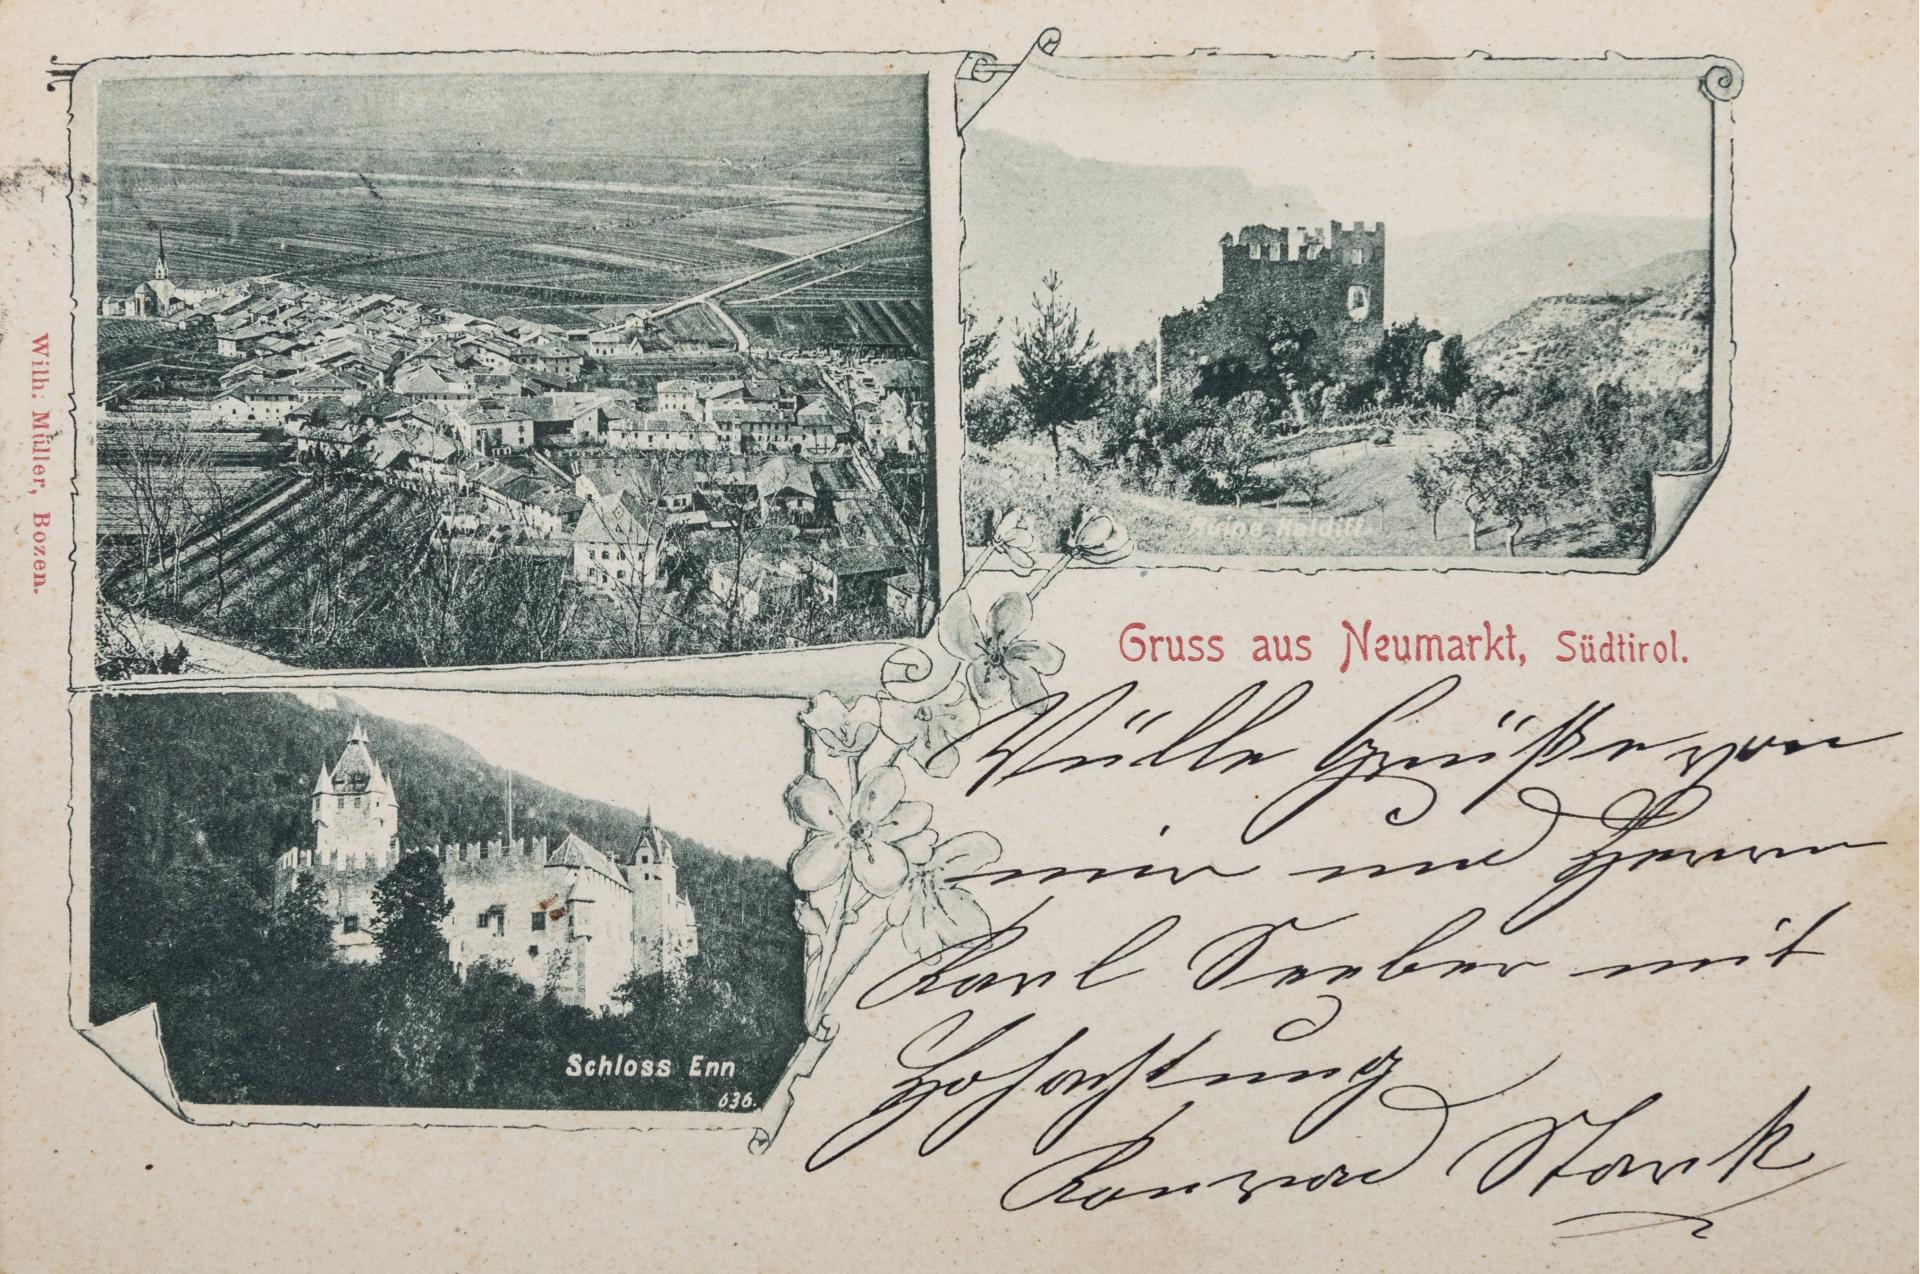 Wilh. Müller, Bozen.
Ruine Kaldiff
Gruss aus Neumarkt, Südtirol.
Schloss Enn
636.
Vülle Grüße von
mir und Herrn
Karl Seeber mit
Hochachtung
Konrad Stark